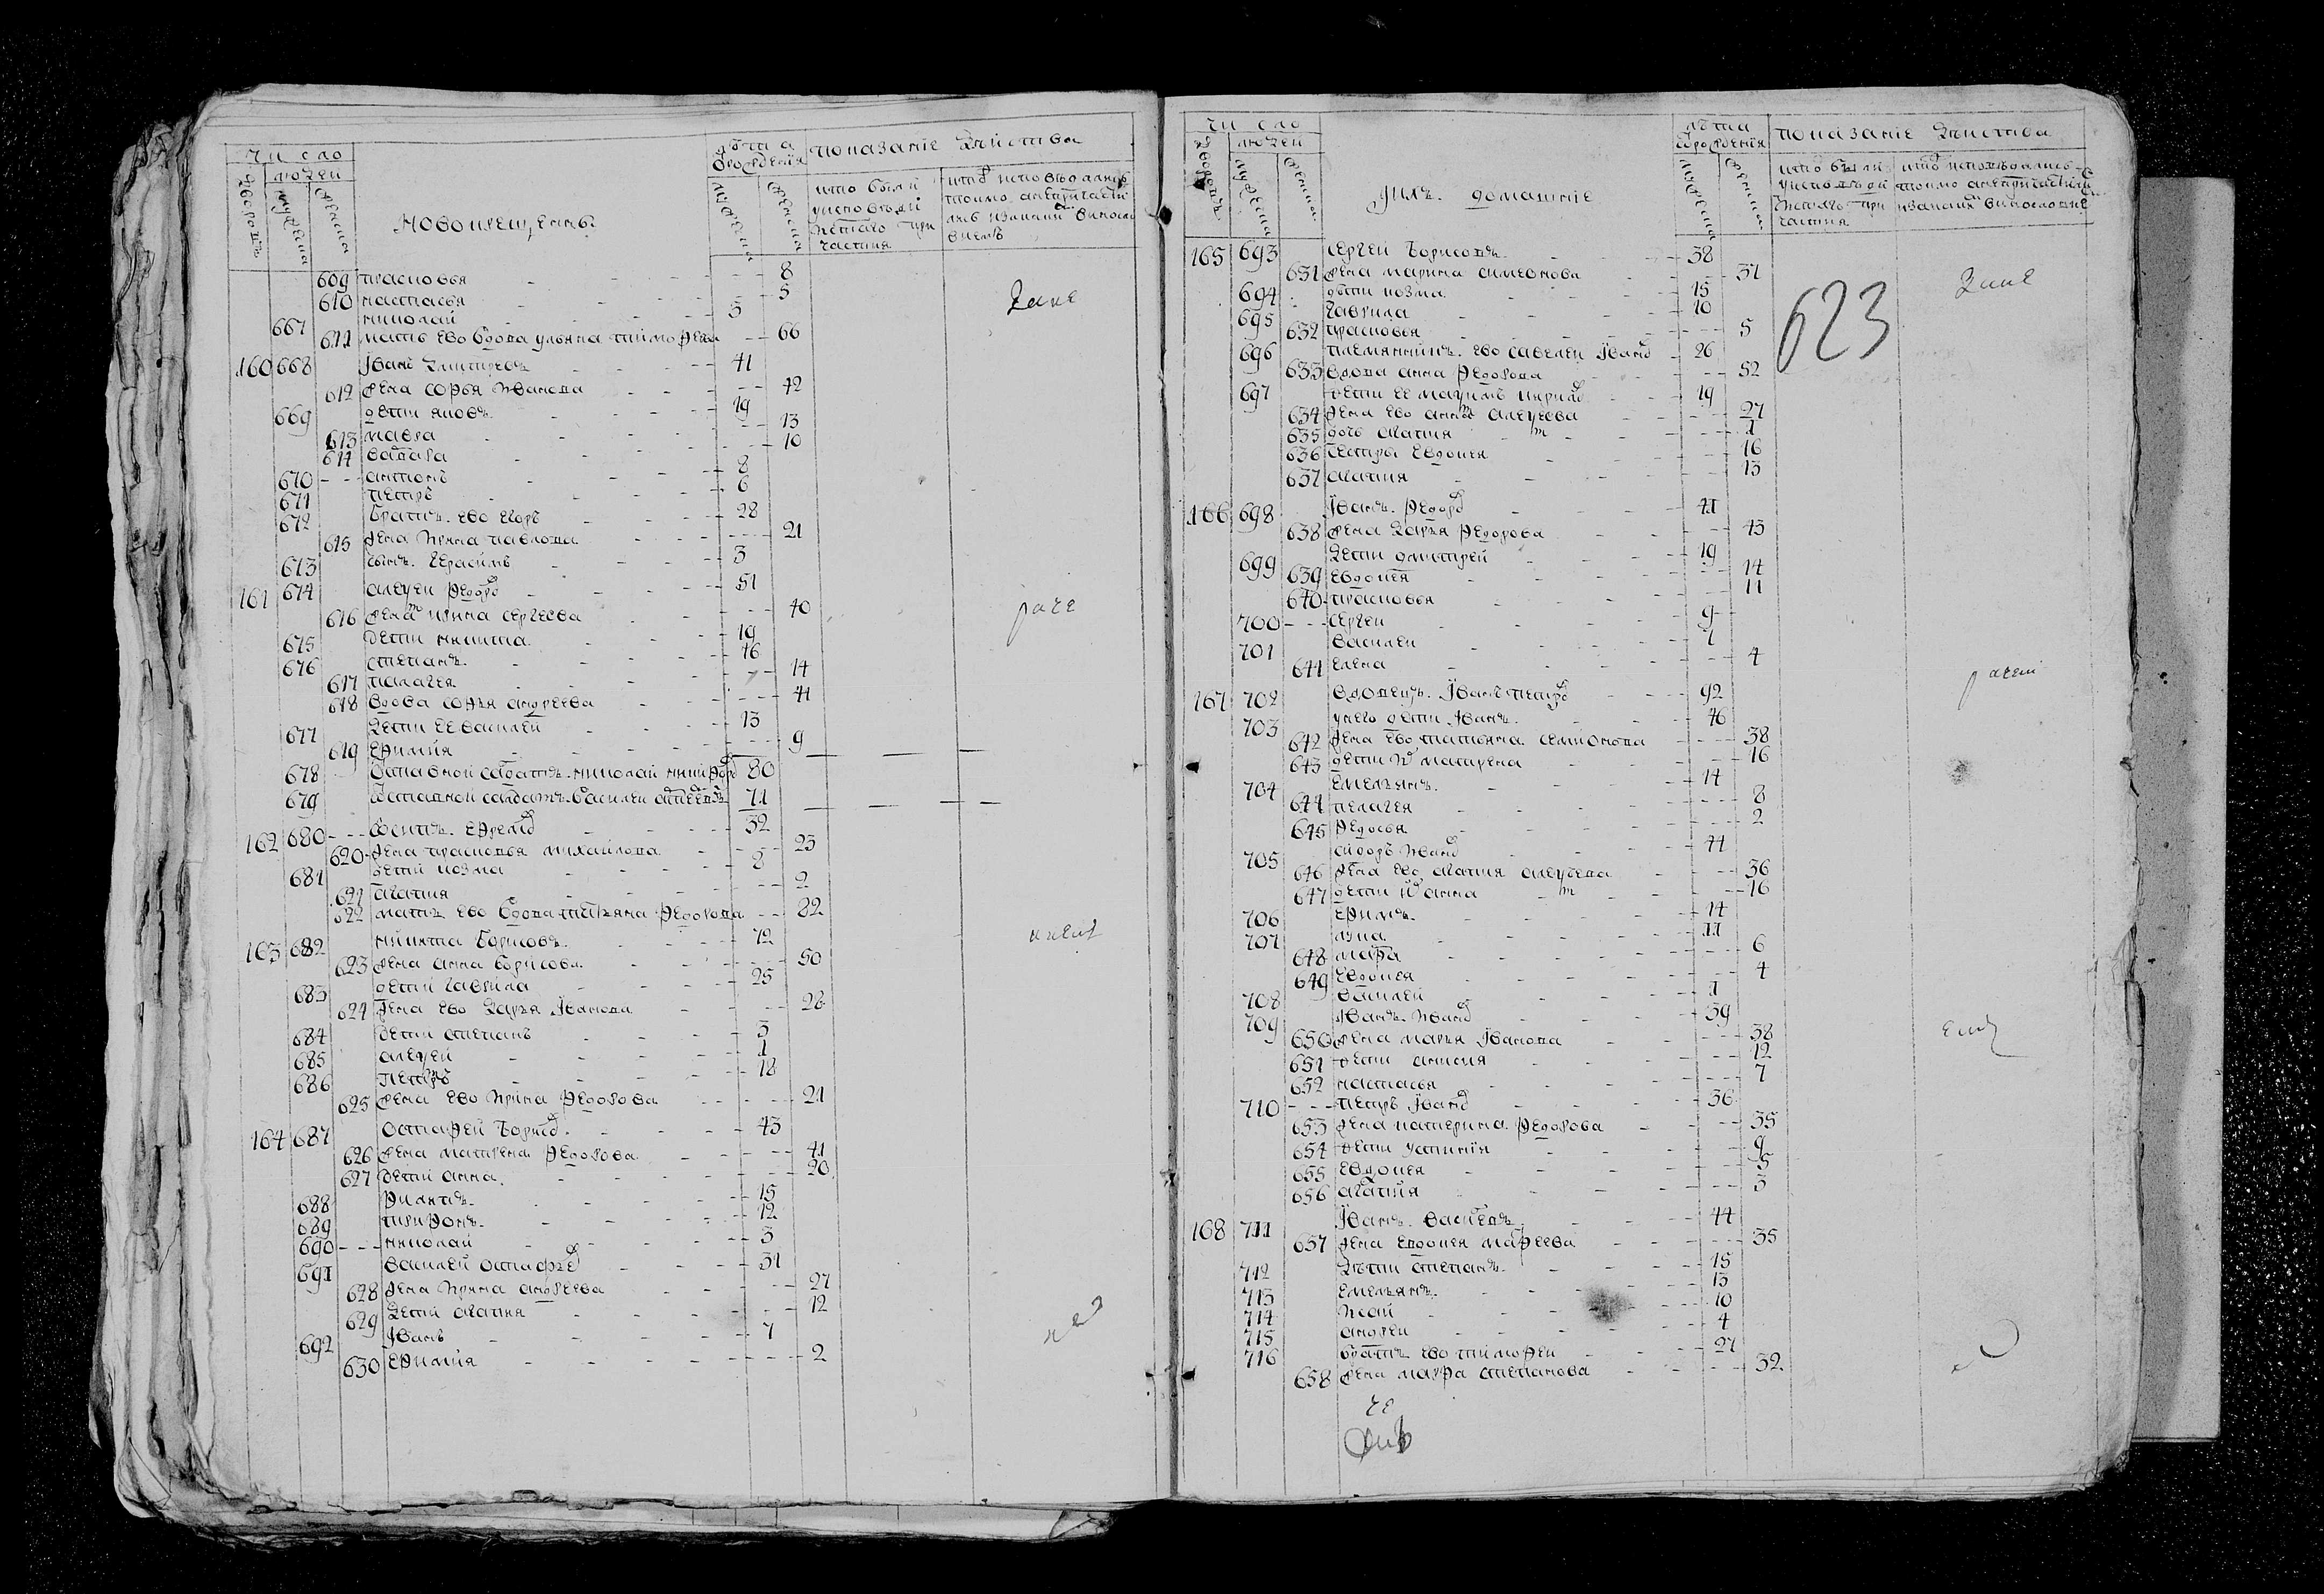 число
людей
дворовъ
мужеска
женска
новокрещены
лѣта
ѿрождения
мужеска
женска
показание дѣйства
кто были
уисповѣди
исвѧтаго при
частия
609 прасковья 8
610 настасья 5
667 николай 5
611 мать ево вдова ульяна тимофеева 66
160 668 Іванъ дмитревъ 41
612 жена софья иванова 42
669 дети яковъ 19
613 мавра 13
614 варвара 10
670 антонъ 8
671 петръ 6
672 братъ ево егоръ 28
615 жена ирина павлова 21
673 сынъ герасимъ 3
161 674 алеѯей федоровъ 51
616 жена ирина сергеева 40
675 дети никита 19
676 степанъ 16
617 палагея 14
618 вдова софья андреева 41
677 дети ее василей 13
619 ефимия 9
678 отставной салдатъ николай никифоровъ 80
679 отставной салдатъ василей 71
162 680 осипъ ефремовъ 32
620 жена прасковья михайлова 23
681 дети козма 8
621 агапия 2
622 мать ево вдова татьяна федорова 82
163 682 никита борисовъ 72
623 жена анна борисова 50
683 дети гаврила 25
624 жена ево дарья Іванова 26
684 дети степанъ 3
685 алеѯей 1
686 петръ 18
625 жена ево ирина федорова 21
164 687 остафей борисовъ 43
626 жена матрена федорова 41
627 дети анна 20
688 филипъ 15
689 трифонъ 12
690 николай 3
691 василей остафьевъ 31
628 жена ирина андреева 27
629 дети агапия 12
692 Іванъ 7
630 ефимия 2
число
людей
дворовъ
мужеска
женска
ихъ домашние
лѣта
ѿрождения
мужеска
женска
показание дѣйства
кто были
уисповѣди
частия
623
165 693 сергей борисовъ 38
631 жена марина симеонова 37
694 дѣти козма 15
695 гаврила 10
632 прасковья 5
696 племянникъ ево савелей Івановъ 26
633 вдова анна федорова 52
697 дети ее маѯимъ 19
634 жена ево анна алеѯеева 27
635 дочь агапия 1
636 сестры евдокея 16
637 агапия 13
166 698 Іванъ федоровъ 41
638 жена дарья федорова 43
699 дети дмитрей 19
639 евдокея 14
640 прасковья 11
700 сергеи 9
701 василеи 7
641 елена 4
167 702 вдовецъ Іванъ петровъ 92
703 унего дети Іванъ 46
642 жена ево татьяна семионова 38
643 дети их матрена 16
704 емельянъ 14
644 пелагея 8
645 федосья 2
705 сидоръ ивановъ 44
646 жена ево агапия алеѯеева 36
647 дети их анна 16
706 ефимъ 14
707 лука 11
648 марфа 6
649 евдокея 4
708 василей 1
709 Іванъ ивановъ 39
650 жена марья Іванова 38
651 дети 12
652 настасья 7
710 петръ Івановъ 36
653 жена катерина федорова 35
654 дети устиния 9
655 евдокея 5
656 агапия 3
168 711 Іванъ васильевъ 44
657 жена евдокея 35
712 дѣти степанъ 15
713 емельянъ 13
714 исай 10
715 андрей 4
716 братъ ево тимофеи 27
658 жена марфа степанова 32